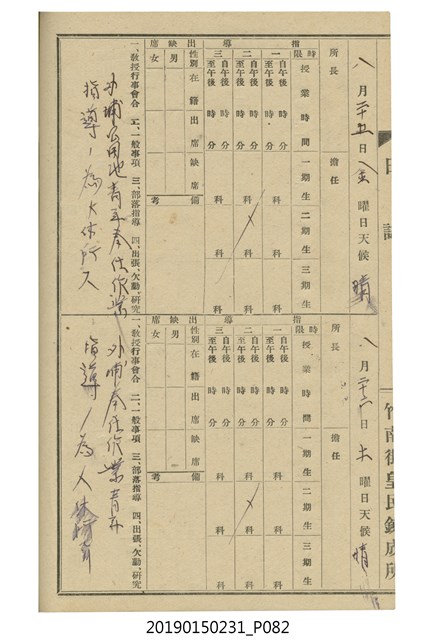 日誌
八月二十五日 金曜日天候 晴
所長　擔任
時限　授業時間　一期生　二期生　三期生
指導
一　自午後　時　分　至午後　時　分　科　科
二　自午後　時　分　至午後　時　分　科　科
三　自午後　時　分　至午後　時　分　科　科
出缺席
性別　在籍　出席　缺席　備考
男
女
一、教授行事會合　二、一般事項　三、部落指導　四、出張、欠勤、研究
外埔
奉仕作業
指導ノ為
竹南街皇民鍊成所
八月二十六日 土曜日天候 晴
所長　擔任
時限　授業時間　一期生　二期生　三期生
指導
一　自午後　時　分　至午後　時　分　科　科
二　自午後　時　分　至午後　時　分　科　科
三　自午後　時　分　至午後　時　分　科　科
出缺席
性別　在籍　出席　缺席　備考
男
女
一、教授行事會合　二、一般事項　三、部落指導　四、出張、欠勤、研究
外埔奉仕作業青年
指導ノ為
20190150231_P082